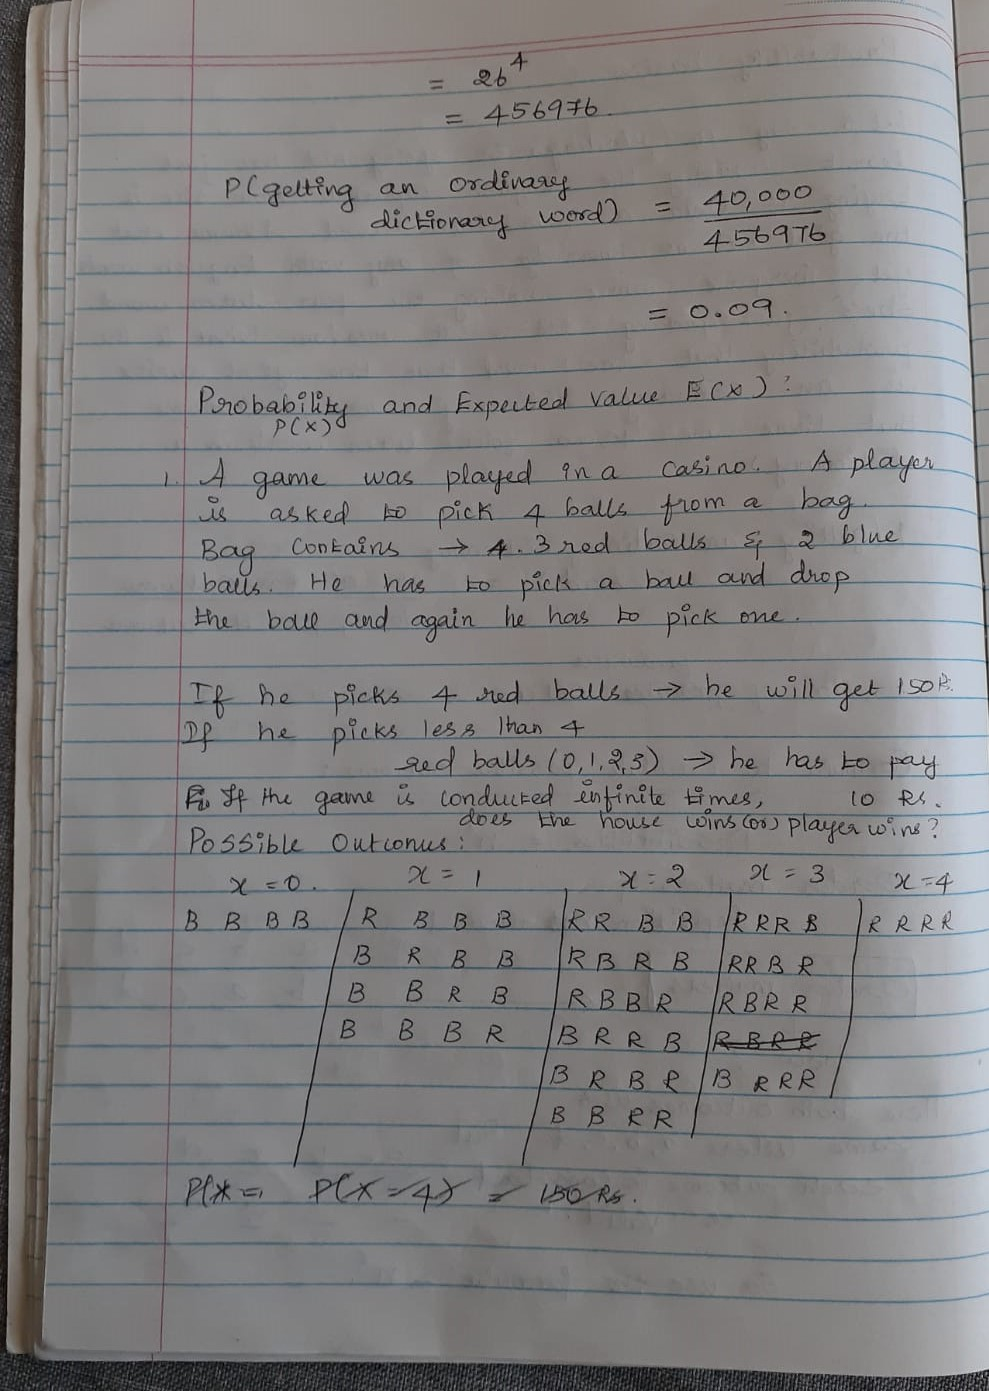 = 26⁴
= 456976.
P(getting an ordinary
dictionary word) = 40,000 / 456976
= 0.09.
Probability and Expected value E(x):
P(x)
1. A game was played in a casino. A player
is asked to pick 4 balls from a bag.
Bag contains → 4. 3 red balls & 2 blue
balls. He has to pick a ball and drop
the ball and again he has to pick one.
If he picks 4 red balls → he will get 150 Rs.
If he picks less than 4
red balls (0,1,2,3) → he has to pay
If the game is conducted infinite times, 10 Rs.
does the house wins (or) player wins?
Possible Outcomes:
x = 0. x = 1 x = 2 x = 3 x = 4
B B B B R B B B R R B B R R R B R R R R
B R B B R B R B R R B R
B B R B R B B R R B R R
B B B R B R R B R B R R
B R B R B R R R
B B R R
P(x =, P(x = 4) = 150 Rs.